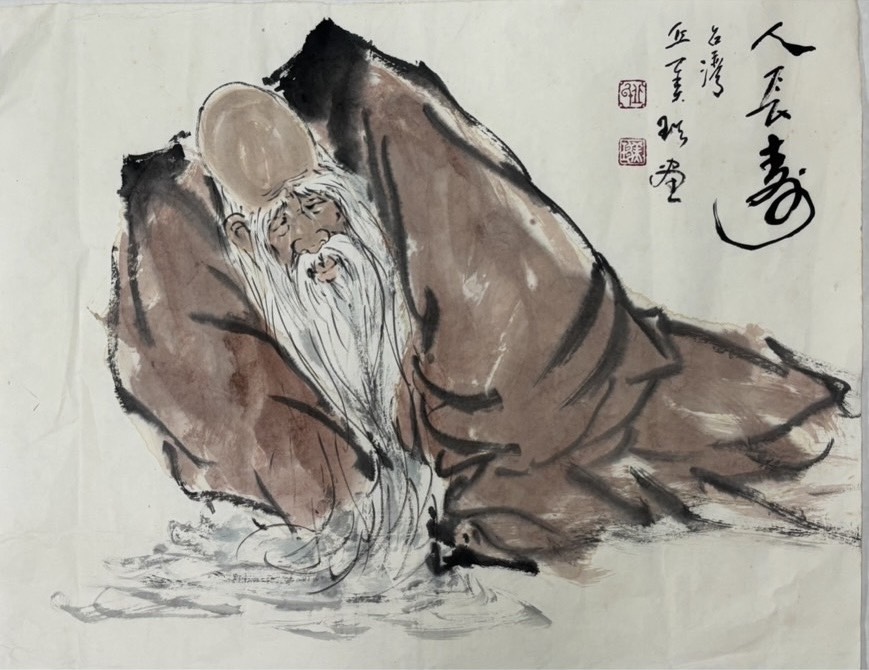 人長壽
台灣
丘 畫